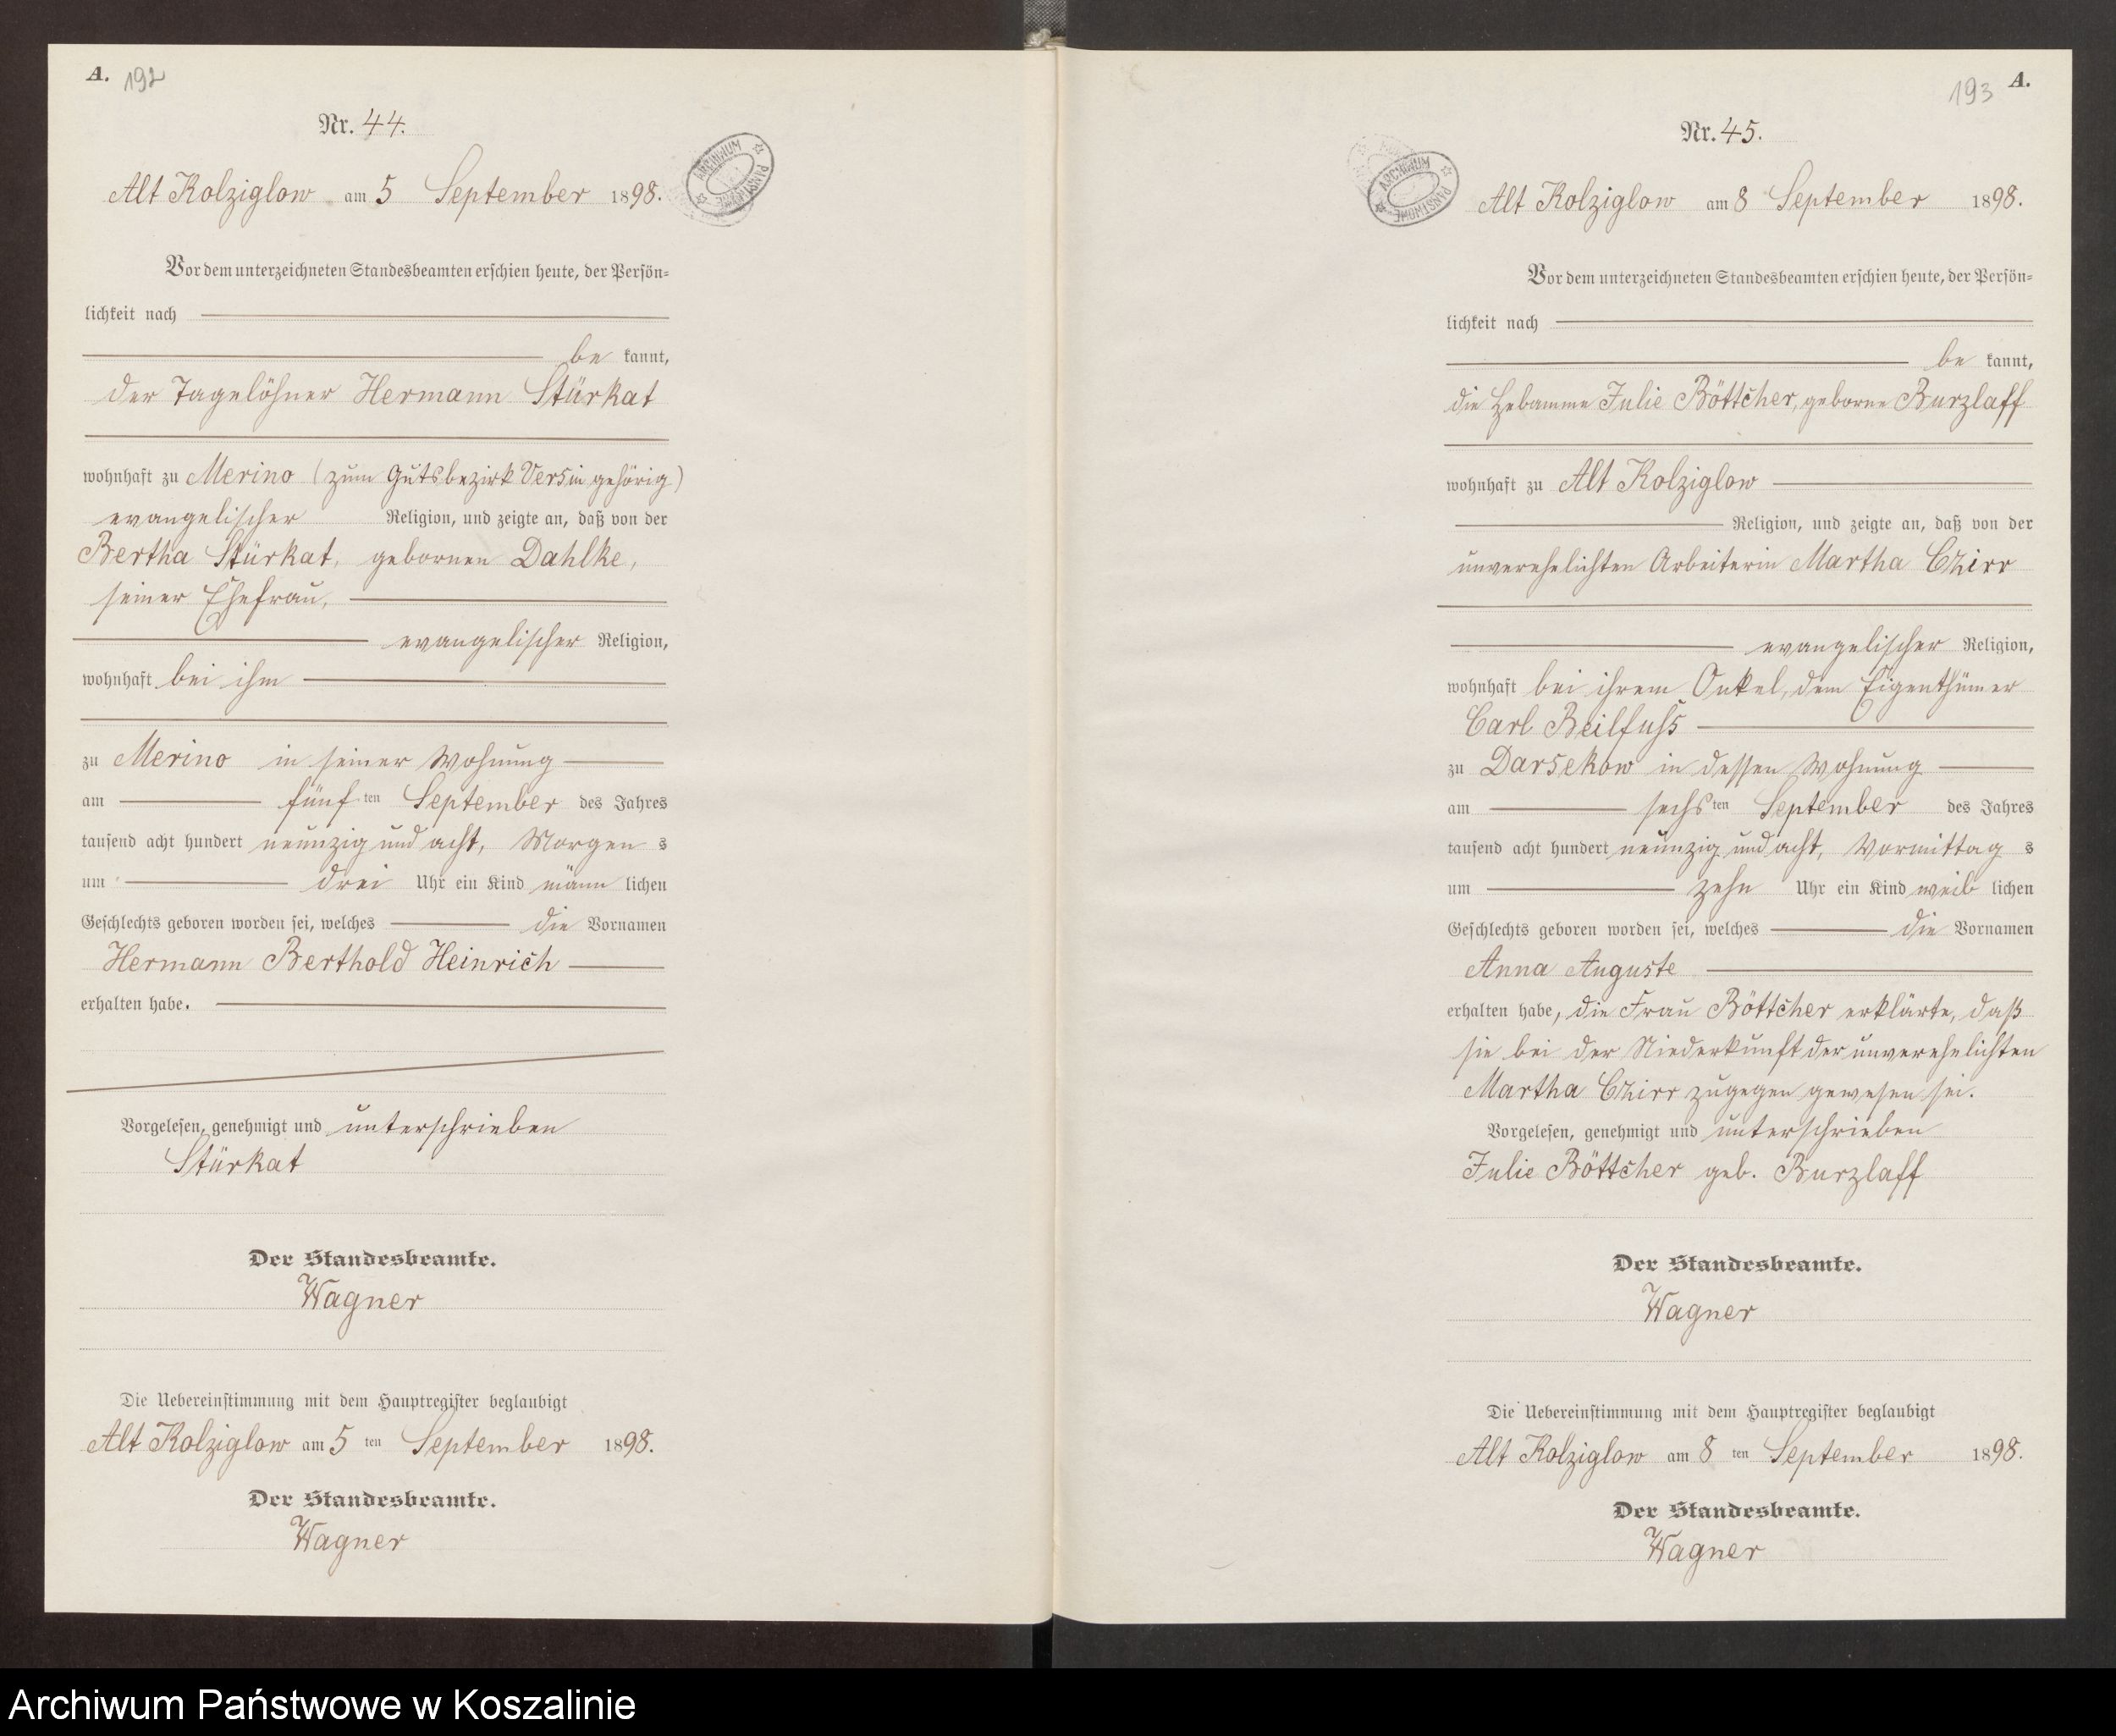 A. 192
Nr. 44.
Alt Kolziglow am 5 September 1898.
ARCHIWUM PAŃSTWOWE
Vor dem unterzeichneten Standesbeamten erschien heute, der Persön-
lichkeit nach
be kannt,
der Tagelöhner Hermann Stürkat
wohnhaft zu Merino (zum Gutsbezirk Versin gehörig)
evangelischer Religion, und zeigte an, daß von der
Bertha Stürkat, gebornen Dahlke,
seiner Ehefrau,
evangelischer Religion,
wohnhaft bei ihm
zu Merino in seiner Wohnung
am fünf ten September des Jahres
tausend acht hundert neunzig und acht, Morgen s
um drei Uhr ein Kind männ lichen
Geschlechts geboren worden sei, welches die Vornamen
Hermann Berthold Heinrich
erhalten habe.
Vorgelesen, genehmigt und unterschrieben
Stürkat
Der Standesbeamte.
Wagner
Die Uebereinstimmung mit dem Hauptregister beglaubigt
Alt Kolziglow am 5 ten September 1898.
Der Standesbeamte.
Wagner
193 A.
Nr. 45.
ARCHIWUM PAŃSTWOWE
Alt Kolziglow am 8 September 1898.
Vor dem unterzeichneten Standesbeamten erschien heute, der Persön-
lichkeit nach
be kannt,
die Hebamme Julie Böttcher, geborne Burzlaff
wohnhaft zu Alt Kolziglow
Religion, und zeigte an, daß von der
unverehelichten Arbeiterin Martha
evangelischer Religion,
wohnhaft bei ihrem Onkel, dem Eigenthümer
Carl Beilfuß
zu Darsekow in dessen Wohnung
am sechs ten September des Jahres
tausend acht hundert neunzig und acht, Vormittag s
um zehn Uhr ein Kind weib lichen
Geschlechts geboren worden sei, welches die Vornamen
Anna Auguste
erhalten habe, die Frau Böttcher erklärte, daß
sie bei der Niederkunft der unverehelichten
Martha zugegen gewesen sei.
Vorgelesen, genehmigt und unterschrieben
Julie Böttcher geb. Burzlaff
Der Standesbeamte.
Wagner
Die Uebereinstimmung mit dem Hauptregister beglaubigt
Alt Kolziglow am 8 ten September 1898.
Der Standesbeamte.
Wagner
Archiwum Państwowe w Koszalinie